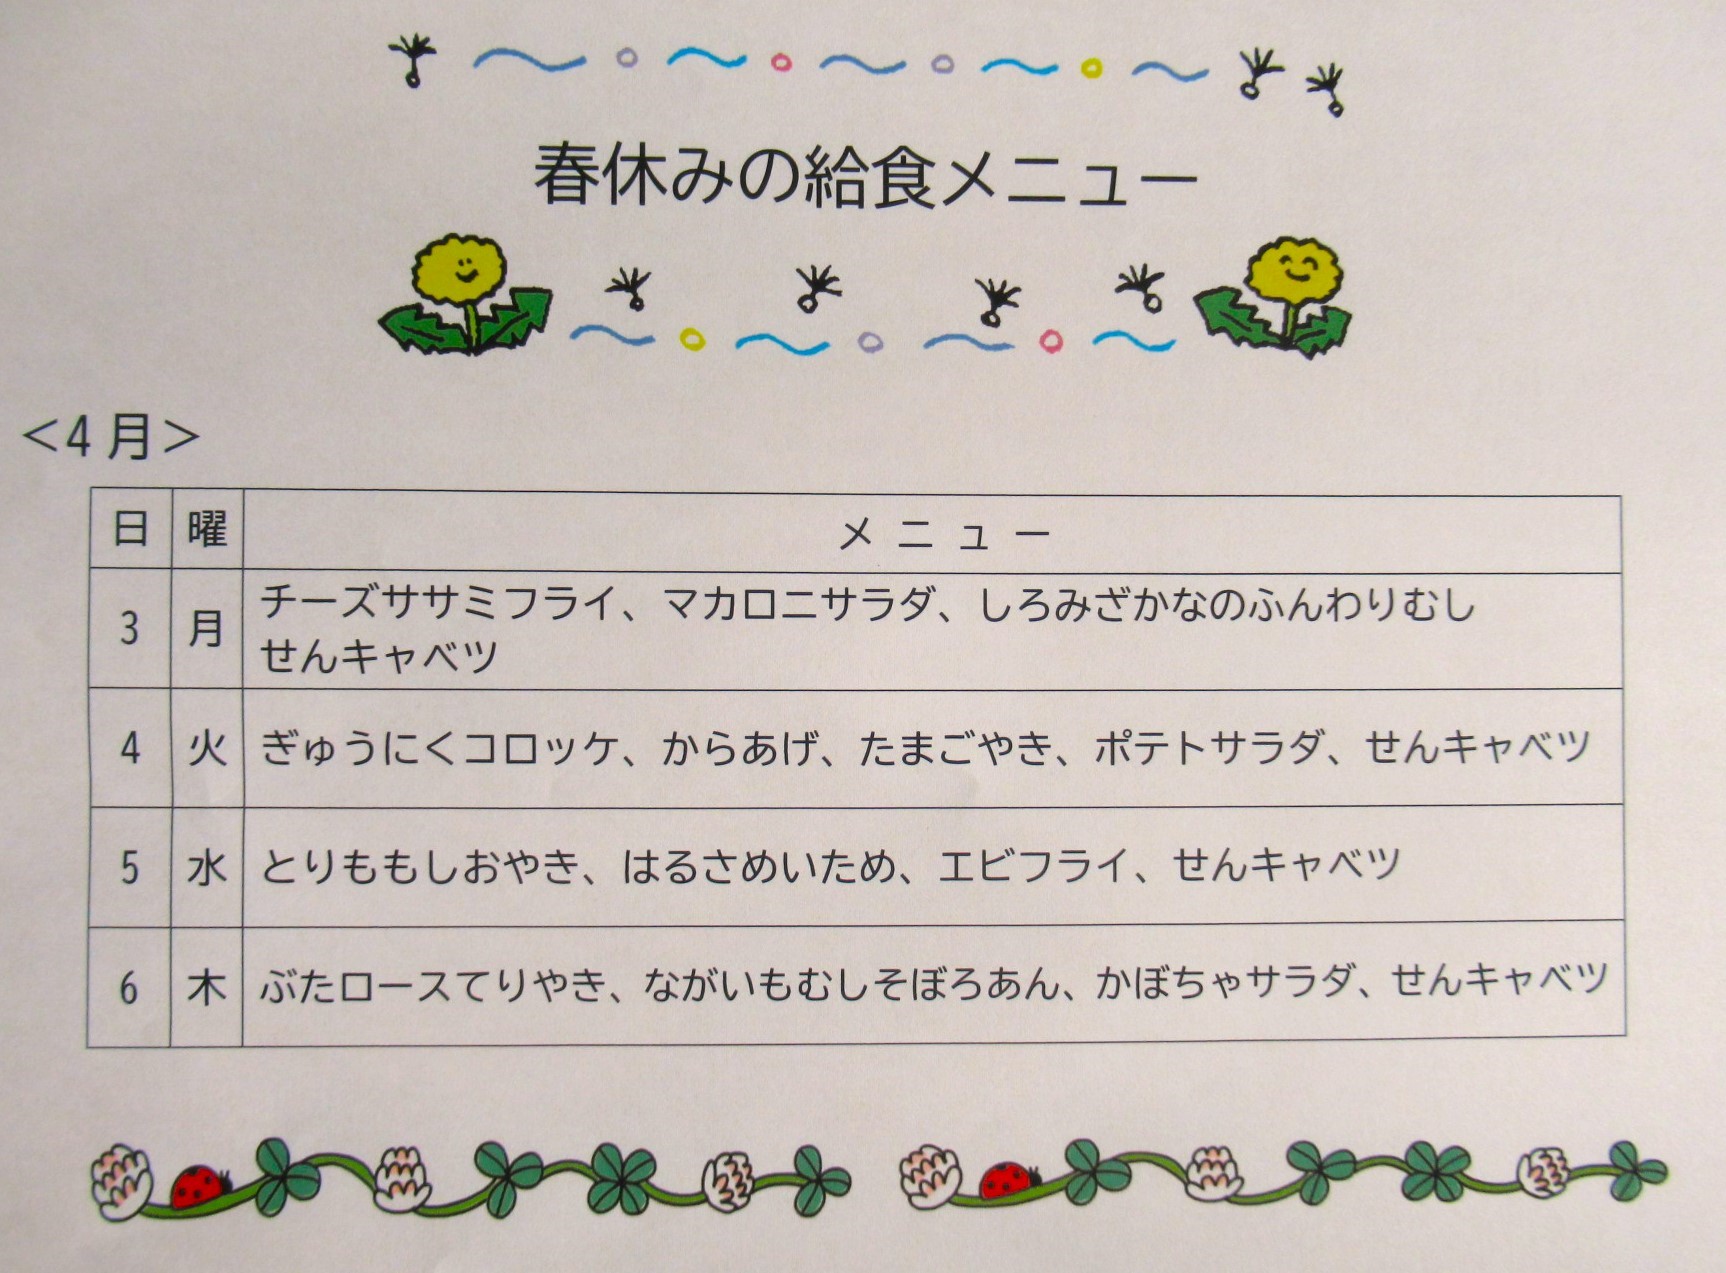 春休みの給食メニュー
<4月>
日 曜 メニュー
3 月 チーズササミフライ、マカロニサラダ、しろみざかなのふんわりむし
せんキャベツ
4 火 ぎゅうにくコロッケ、からあげ、たまごやき、ポテトサラダ、せんキャベツ
5 水 とりももしおやき、はるさめいため、エビフライ、せんキャベツ
6 木 ぶたロースてりやき、ながいもむしそぼろあん、かぼちゃサラダ、せんキャベツ